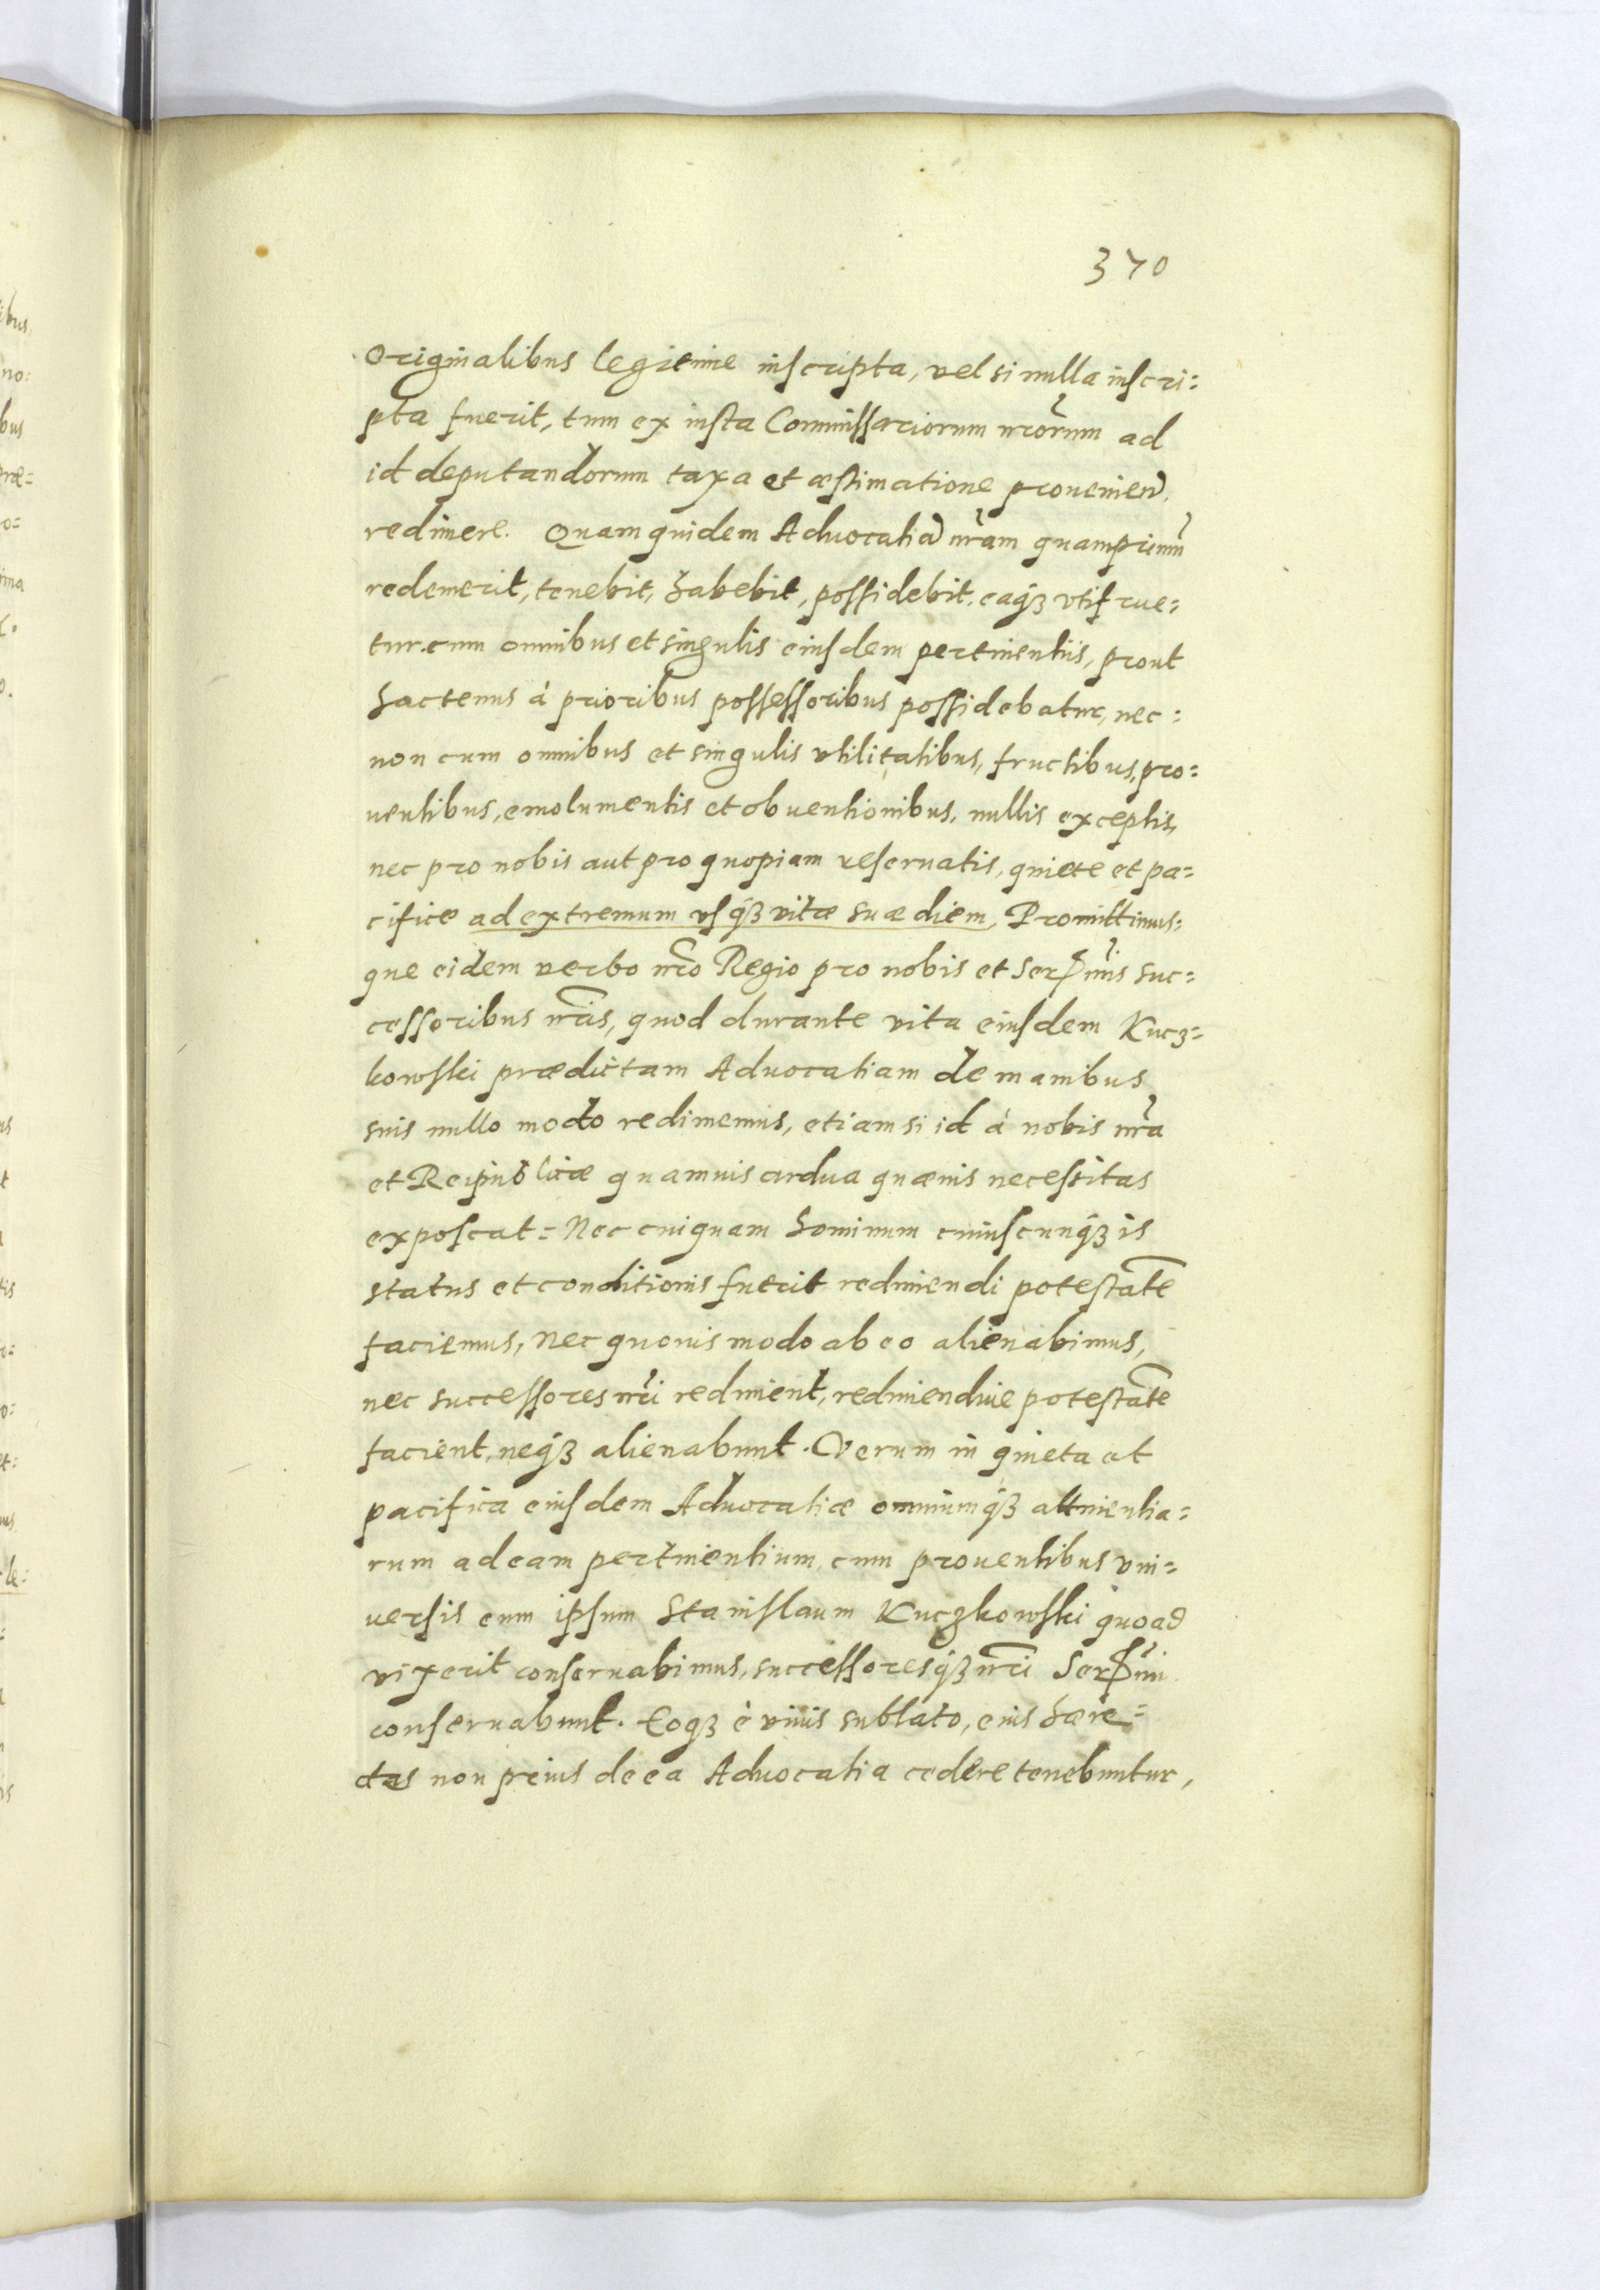 370
Originalibus legitime inscripta, vel si nulla inscri=
pta fuerit, tum ex iusta Commissariorum nr̃orum ad
id deputandorum taxa et æstimatione prouenien̄.
redimere. Quam quidem Aduocatiã nr̃am quamprimũ
redemerit, tenebit, habebit, possidebit, eaq́ꝫ vtifrue=
tur. cum omnibus et singulis eiusdem pertinentiis, prout
hactenus à prioribus possessoribus possidebatur, nec=
non cum omnibus et singulis vtilitatibus, fructibus, pro=
uentibus, emolumentis et obuentionibus, nullis exceptis,
nec pro nobis aut pro quopiam reseruatis, quiete et pa=
cifice ad extremum vsq́ꝫ vitæ suæ diem, Promittimus=
que eidem verbo nr̃o Regio pro nobis et Serẽnimis suc=
cessoribus nr̃is, quod durante vita eiusdem Kucz=
kowski prædictam Aduocatiam de manibus
suis nullo modo redimemus, etiam si id à nobis nr̃a
et Reipublicæ quamuis ardua quæuis necessitas
exposcat = Nec cuiquam hominum cuiuscunq́ꝫ is
status et conditionis fuerit redimendi potestatẽ
faciemus, Nec quouis modo ab eo alienabimus,
nec successores nr̃i redimient, redimendiue potestatẽ
facient, neq́ꝫ alienabunt. Verum in quieta et
pacifica eiusdem Aduocatiæ omniumq́ꝫ attinentia=
rum ad eam pertinentium, cum prouentibus vni=
uersis eum ipsum Stanislaum Kuczkowski quoad
vixerit conseruabimus, successoresq́ꝫ nr̃i Serẽnimi
conseruabunt. Eoqꝫ è viuis sublato, eius hære=
des non prius de ea Aduocatia cedere tenebuntur,